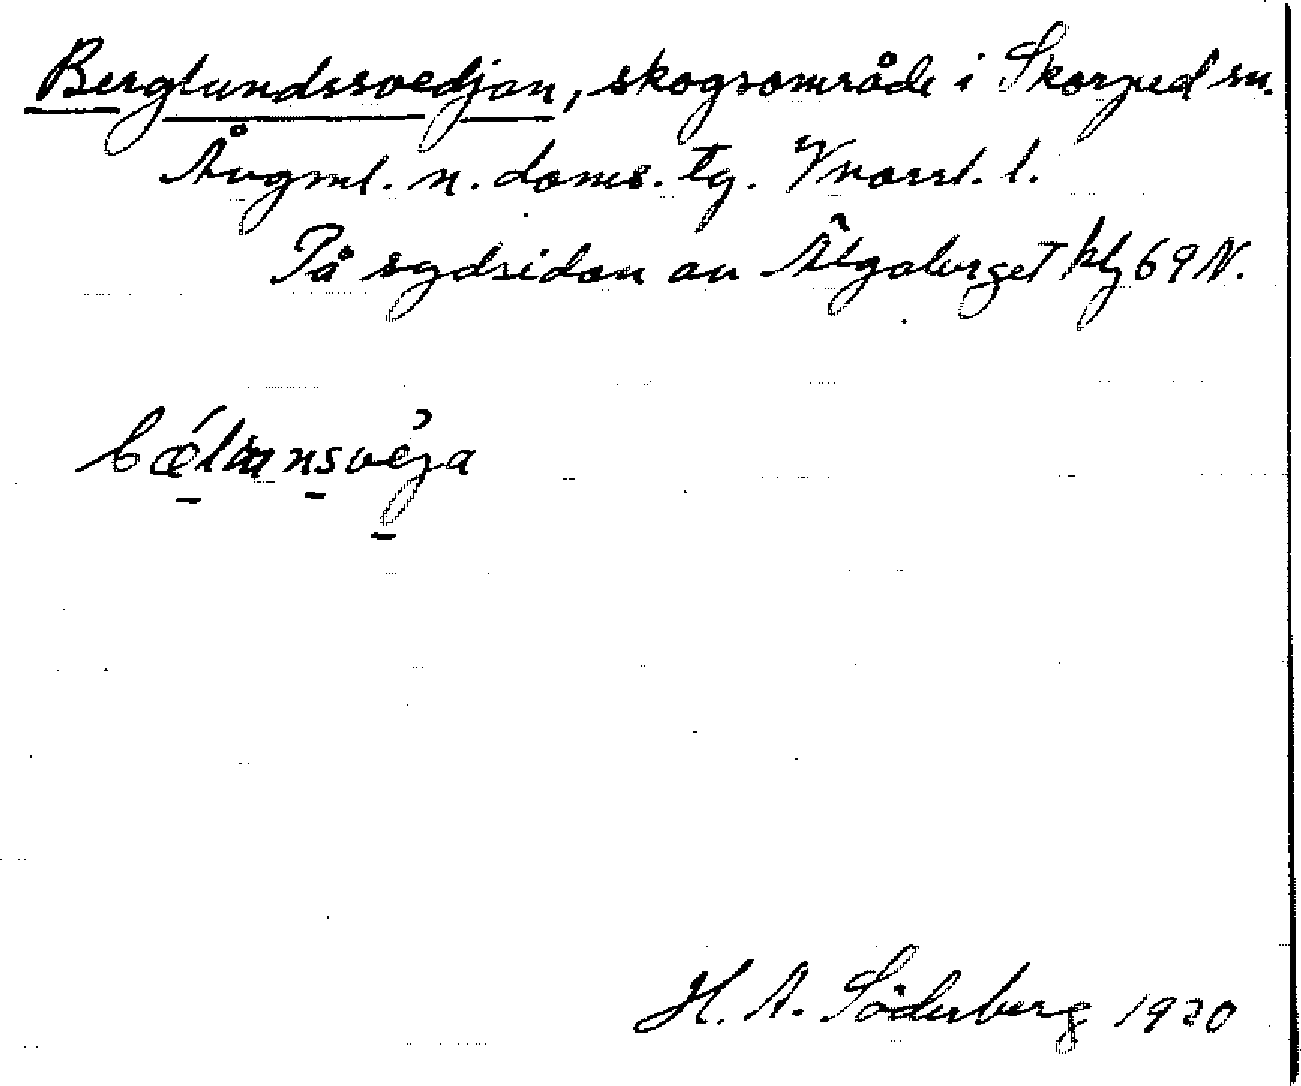 Berglundssvedjan, skogsområde i Skorped sn.
Ångml. n. doms. tg. Vnorrl. l.
På sydsidan av Älgaberget kbl 69 N.
H. A. Söderberg 1920